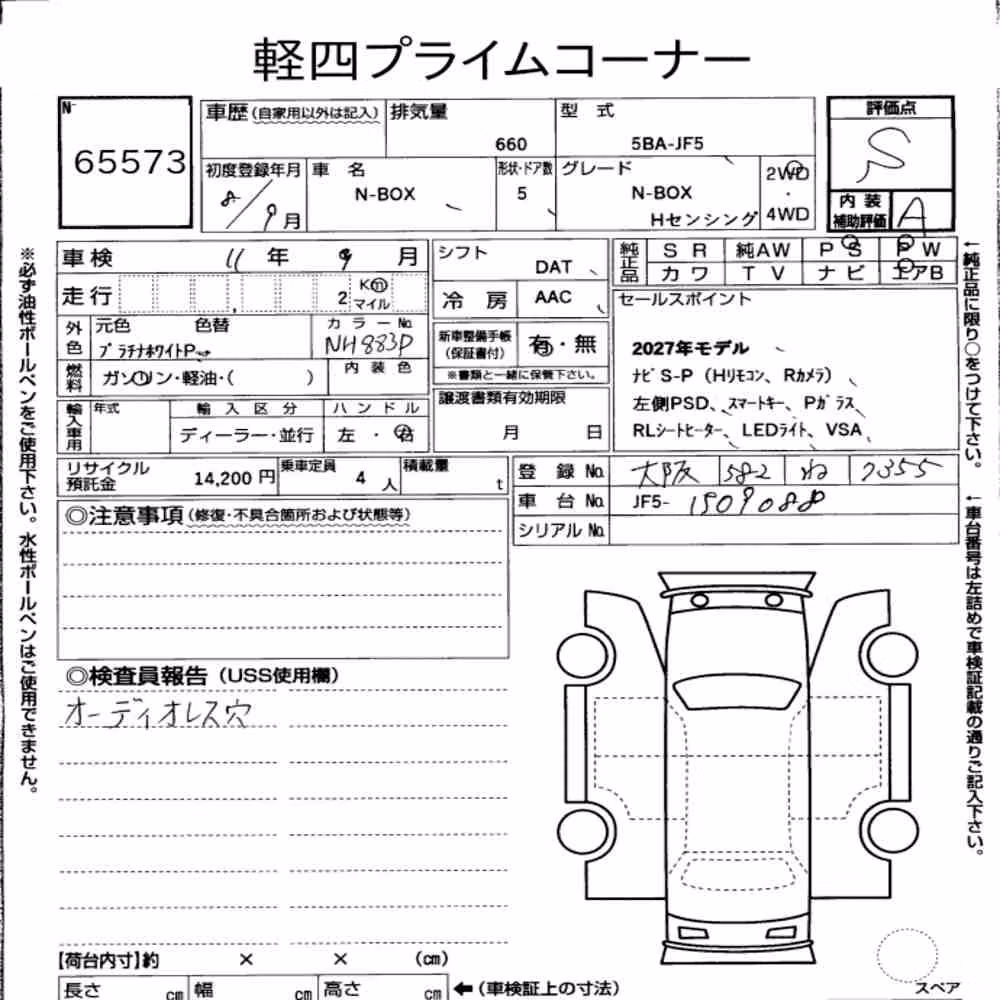 軽四プライムコーナー
N-
65573
車歴(自家用以外は記入) 排気量 型 式
660 5BA-JF5
初度登録年月 車 名 形状・ドア数 グレード
8/9月 N-BOX 5 N-BOX
Hセンシング
2WD
・
4WD
評価点
S
内 装
補助評価
A
車検 11年 9月
走行 2 Km
マイル
外色 元色 色替 カラーNo.
プラチナホワイトP NH883P
燃料 ガソリン・軽油・( ) 内 装 色
輸入車用 年式 輸 入 区 分 ハ ン ド ル
ディーラー・並行 左・右
シフト DAT
冷 房 AAC
新車整備手帳
(保証書付) 有・無
※書類と一緒に保管下さい。
譲渡書類有効期限
月 日
純正品 S R 純AW P S P W
カ ワ T V ナ ビ エアB
セールスポイント
2027年モデル
ナビS-P(Hリモコン、Rカメラ)
左側PSD、スマートキー、Pガラス
RLシートヒーター、LEDライト、VSA
リサイクル
預託金 14,200円 乗車定員 4人 積載量 t
登 録 No. 大阪 582 ね 7355
車 台 No. JF5- 1509088
シリアル No.
◎注意事項(修復・不具合箇所および状態等)
◎検査員報告(USS使用欄)
オーディオレス穴
【荷台内寸】約 × × (cm)
長さ cm 幅 cm 高さ cm ←(車検証上の寸法)
スペア
※必ず油性ボールペンをご使用下さい。水性ボールペンはご使用できません。
←純正品に限り○をつけて下さい。
←車台番号は左詰めで車検証記載の通りご記入下さい。